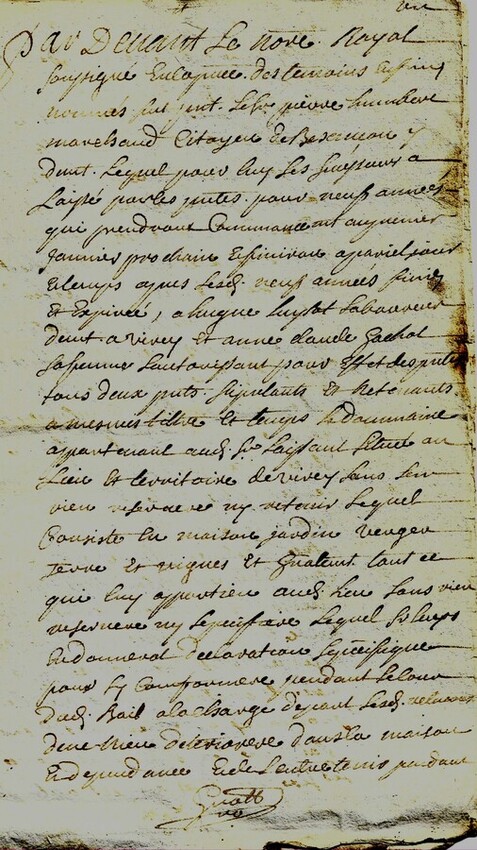 Par Devant Le nore Royal
soussigné En la pnce des temoins En fin
nommés fut pnt. Le Sr pierre humbert
marchand Citoyen de Besancon y
demt. Lequel pour luy Les Siens a
Laissé par les pntes. pour neuf années
qui prendront Commancement au premier
Janvier prochain Et finiront a pareil jour
Et temps apres Lesd. neuf années finies
Et Expirée, a hugue Laboureur
demt a virey Et anne claude
sa femme Lautorisant pour Effet des pntes
tous deux pnts. stipulants Et Retenants
a mesme tiltre Et temps Le dommaine
appartenant aud. Sr Laissant Situé au
Lieu Et territoire de virey Sans en
rien reservere ny retenir Lequel
Consiste En maison jardin verger
Terre Et vignes Et tout ce
qui luy appartien aud. Lieu Sans rien
reservere ny Lequel Sr Leurs
En donnerat declaration Specifique
pour Sy Conformere pendant Le Cour
dud. Bail a la charge Lesd. retenans
de ne rien deteriorere dans la maison
Et dependance Et de Lentretenir pendant